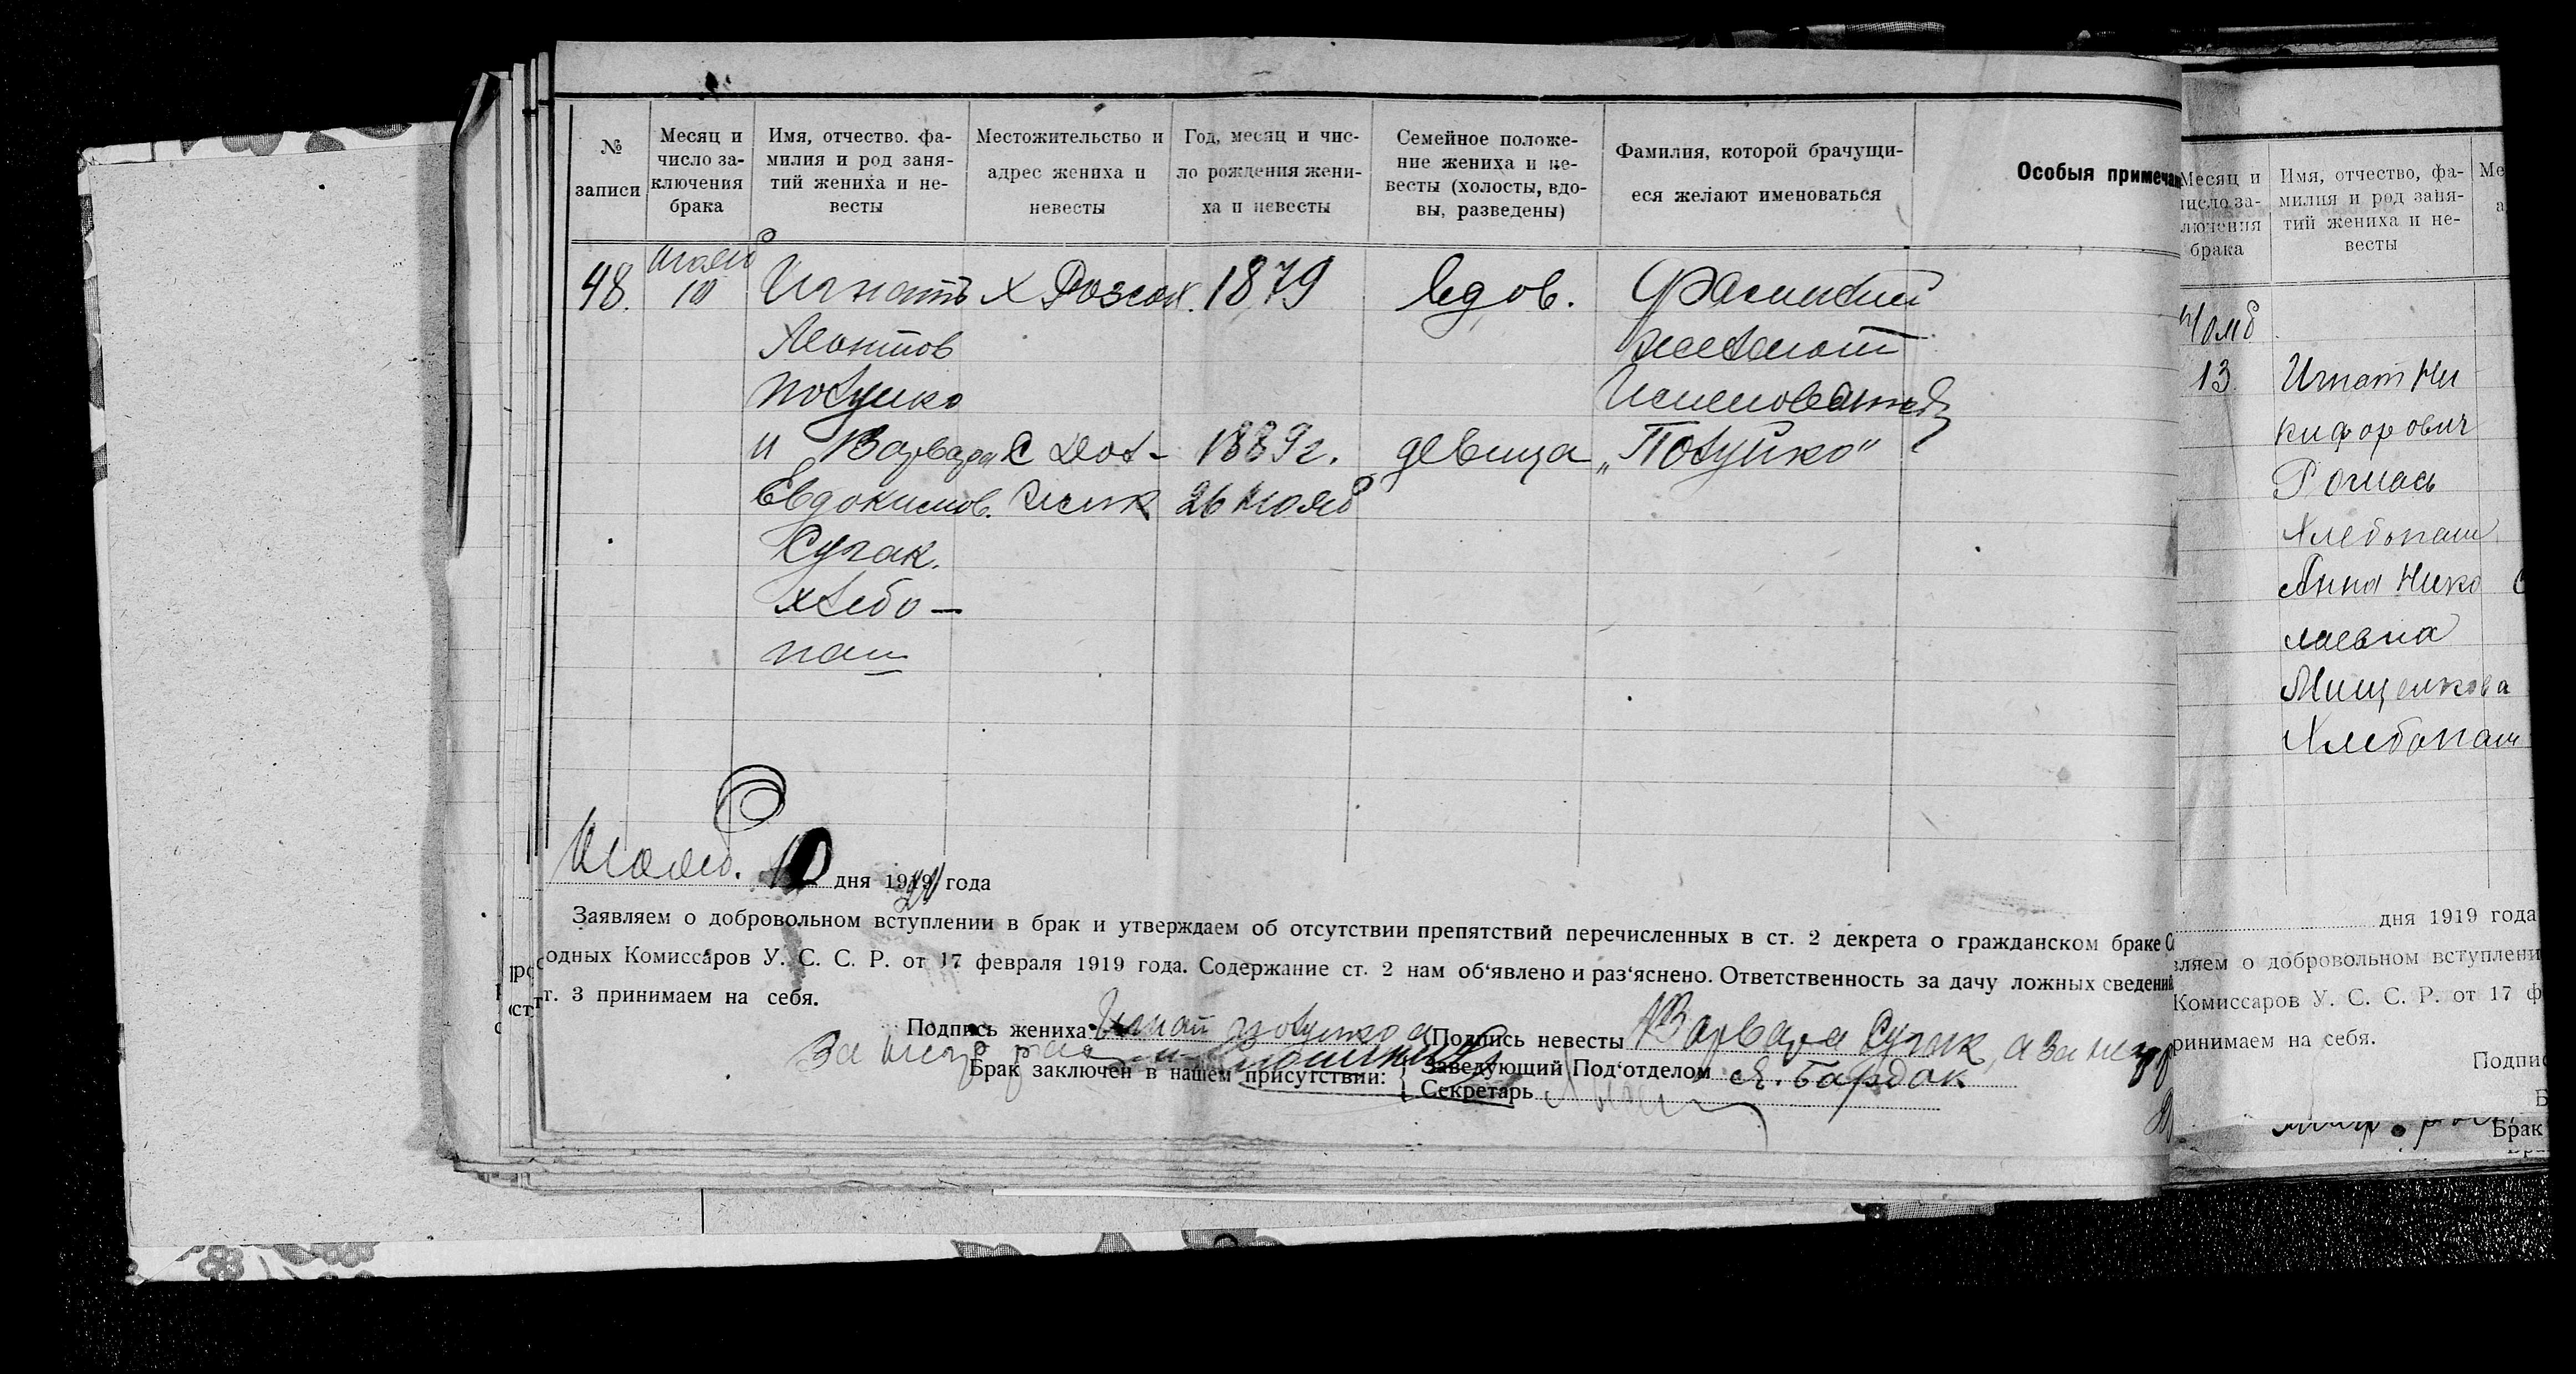 № записи
Месяц и число заключения брака
Имя, отчество. фамилия и род занятий жениха и невесты
Местожительство и адрес жениха и невесты
Год, месяц и число рождения жениха и невесты
Семейное положение жениха и невесты (холосты, вдовы, разведены)
Фамилия, которой брачущиеся желают именоваться
Особыя примечан
48. 10 Игнатъ 1879 вдов. Фамилией
Леонтов желают
Полушко Именоватся
и Варвара С 1889 г. девица „Полушко"
Евдокимов. 26 нояб
Сугак.
хлебо-
паш
10 дня 1919 года
Заявляем о добровольном вступлении в брак и утверждаем об отсутствии препятствий перечисленных в ст. 2 декрета о гражданском браке С
одных Комиссаров У. С. С. Р. от 17 февраля 1919 года. Содержание ст. 2 нам об‘явлено и раз‘яснено. Ответственность за дачу ложных сведений
т. 3 принимаем на себя.
Подпись жениха Игнат Полушко а Подпись невесты Варвара Сугак, а за негр
За негр рас
Брак заключен в нашем присутствии: Заведующий Под‘отделом Бардак
Секретарь
Месяц и число заключения брака
Имя, отчество, фамилия и род занятий жениха и невесты
Ме
а
Нояб
13 Игнат Ни
кифорович
Ромась
Хлебопаш
Анна Нико
лаевна
Мищенкова
Хлебопаш
дня 1919 года
вляем о добровольном вступлени
Комиссаров У. С. С. Р. от 17 ф
ринимаем на себя.
Подпис
Б
Брак